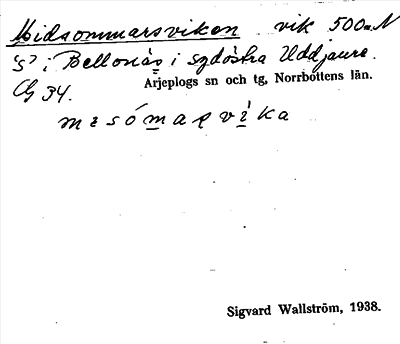 Midsommarsviken vik 500m N
"S" i Bellonäs i sydöstra Uddjaure.
Arjeplogs sn och tg, Norrbottens län.
34.
Sigvard Wallström, 1938.